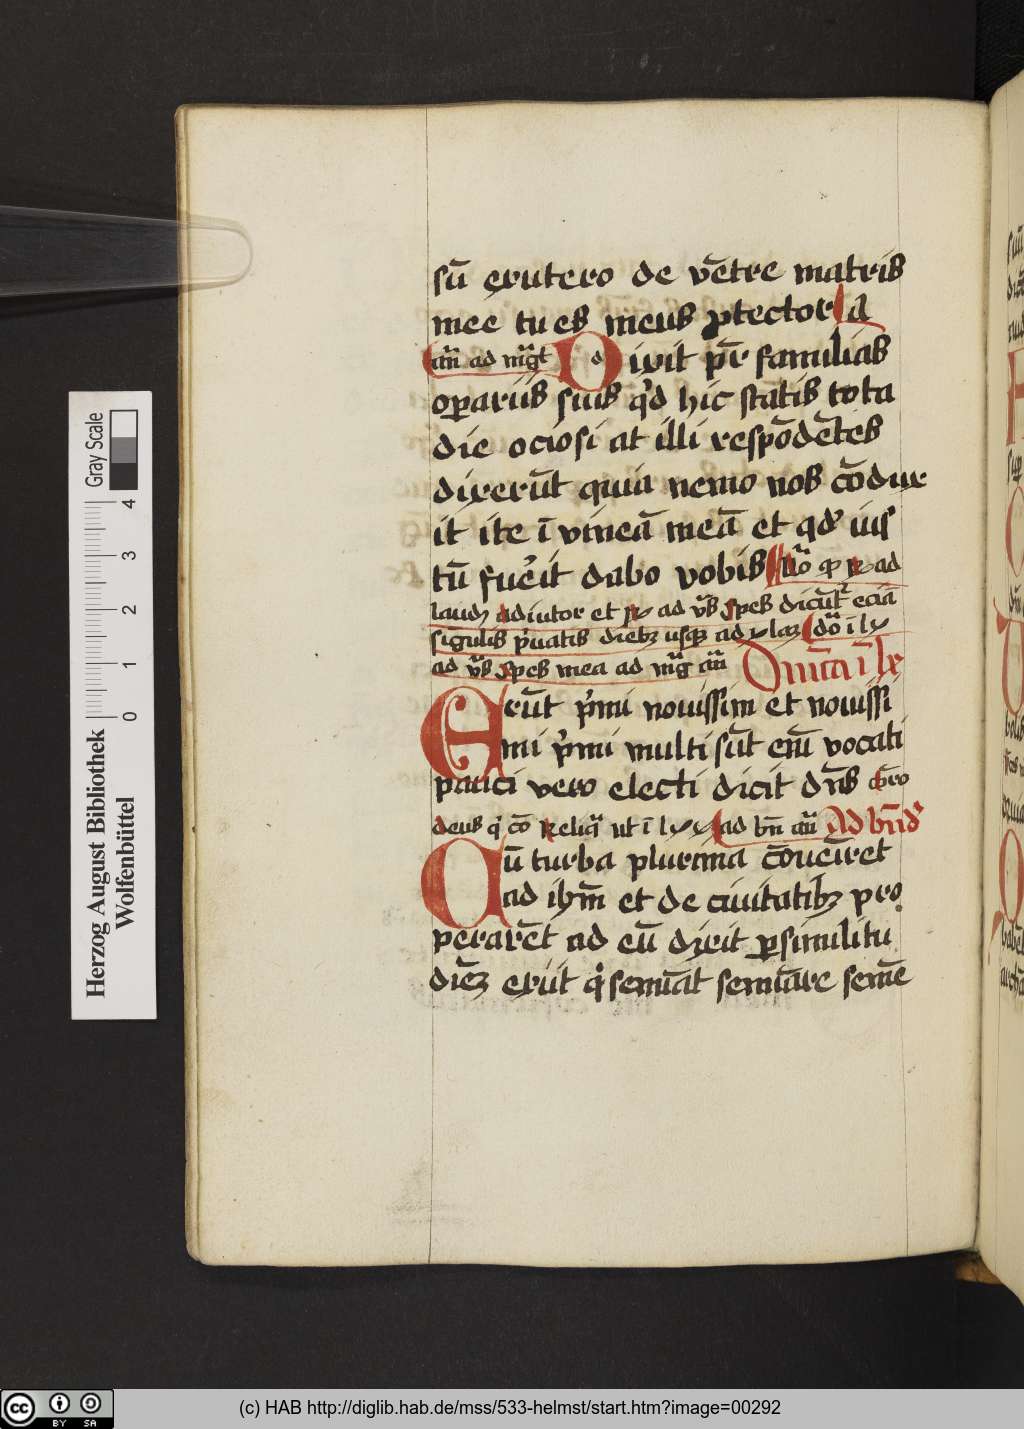 sū exutero de vētre matris
mee tu es meus ꝓtector a
añ ad mg̃t Dixit pr̄ familias
oꝑariis suis qͥd hic statis tota
die ociosi at illi respōdētes
dixerūt quia nemo nos cōdux
it ite ī vineā meā et qd' ius
tū fuẽit dabo vobis ad
laud adiutor et ad v̄s Spes dicūt ecia
singulis pͥuatis dieb usqȝ ad xlaȝ dō ī lx
ad v̄s Spes mea ad mg̃ añ Dn̄ica ī lx
Erūt pͥmi nouissim et nouissi
mi pͥmi multi sūt em̄ vocati
pauci vero electi dicit dn̄s
deus qͥ Reliq̃ ut ī lxx ad bn̄ añ Ad bn̄d
Cū turba plurima cōueīret
ad ihm̄ et de ciuitatibȝ pro
perarēt ad eū dixit ꝑ similitu
diēȝ exiit qͥ semīat semīare semē
Herzog August Bibliothek
Wolfenbüttel
Gray Scale
0 1 2 3 4
cc BY SA
(c) HAB http://diglib.hab.de/mss/533-helmst/start.htm?image=00292